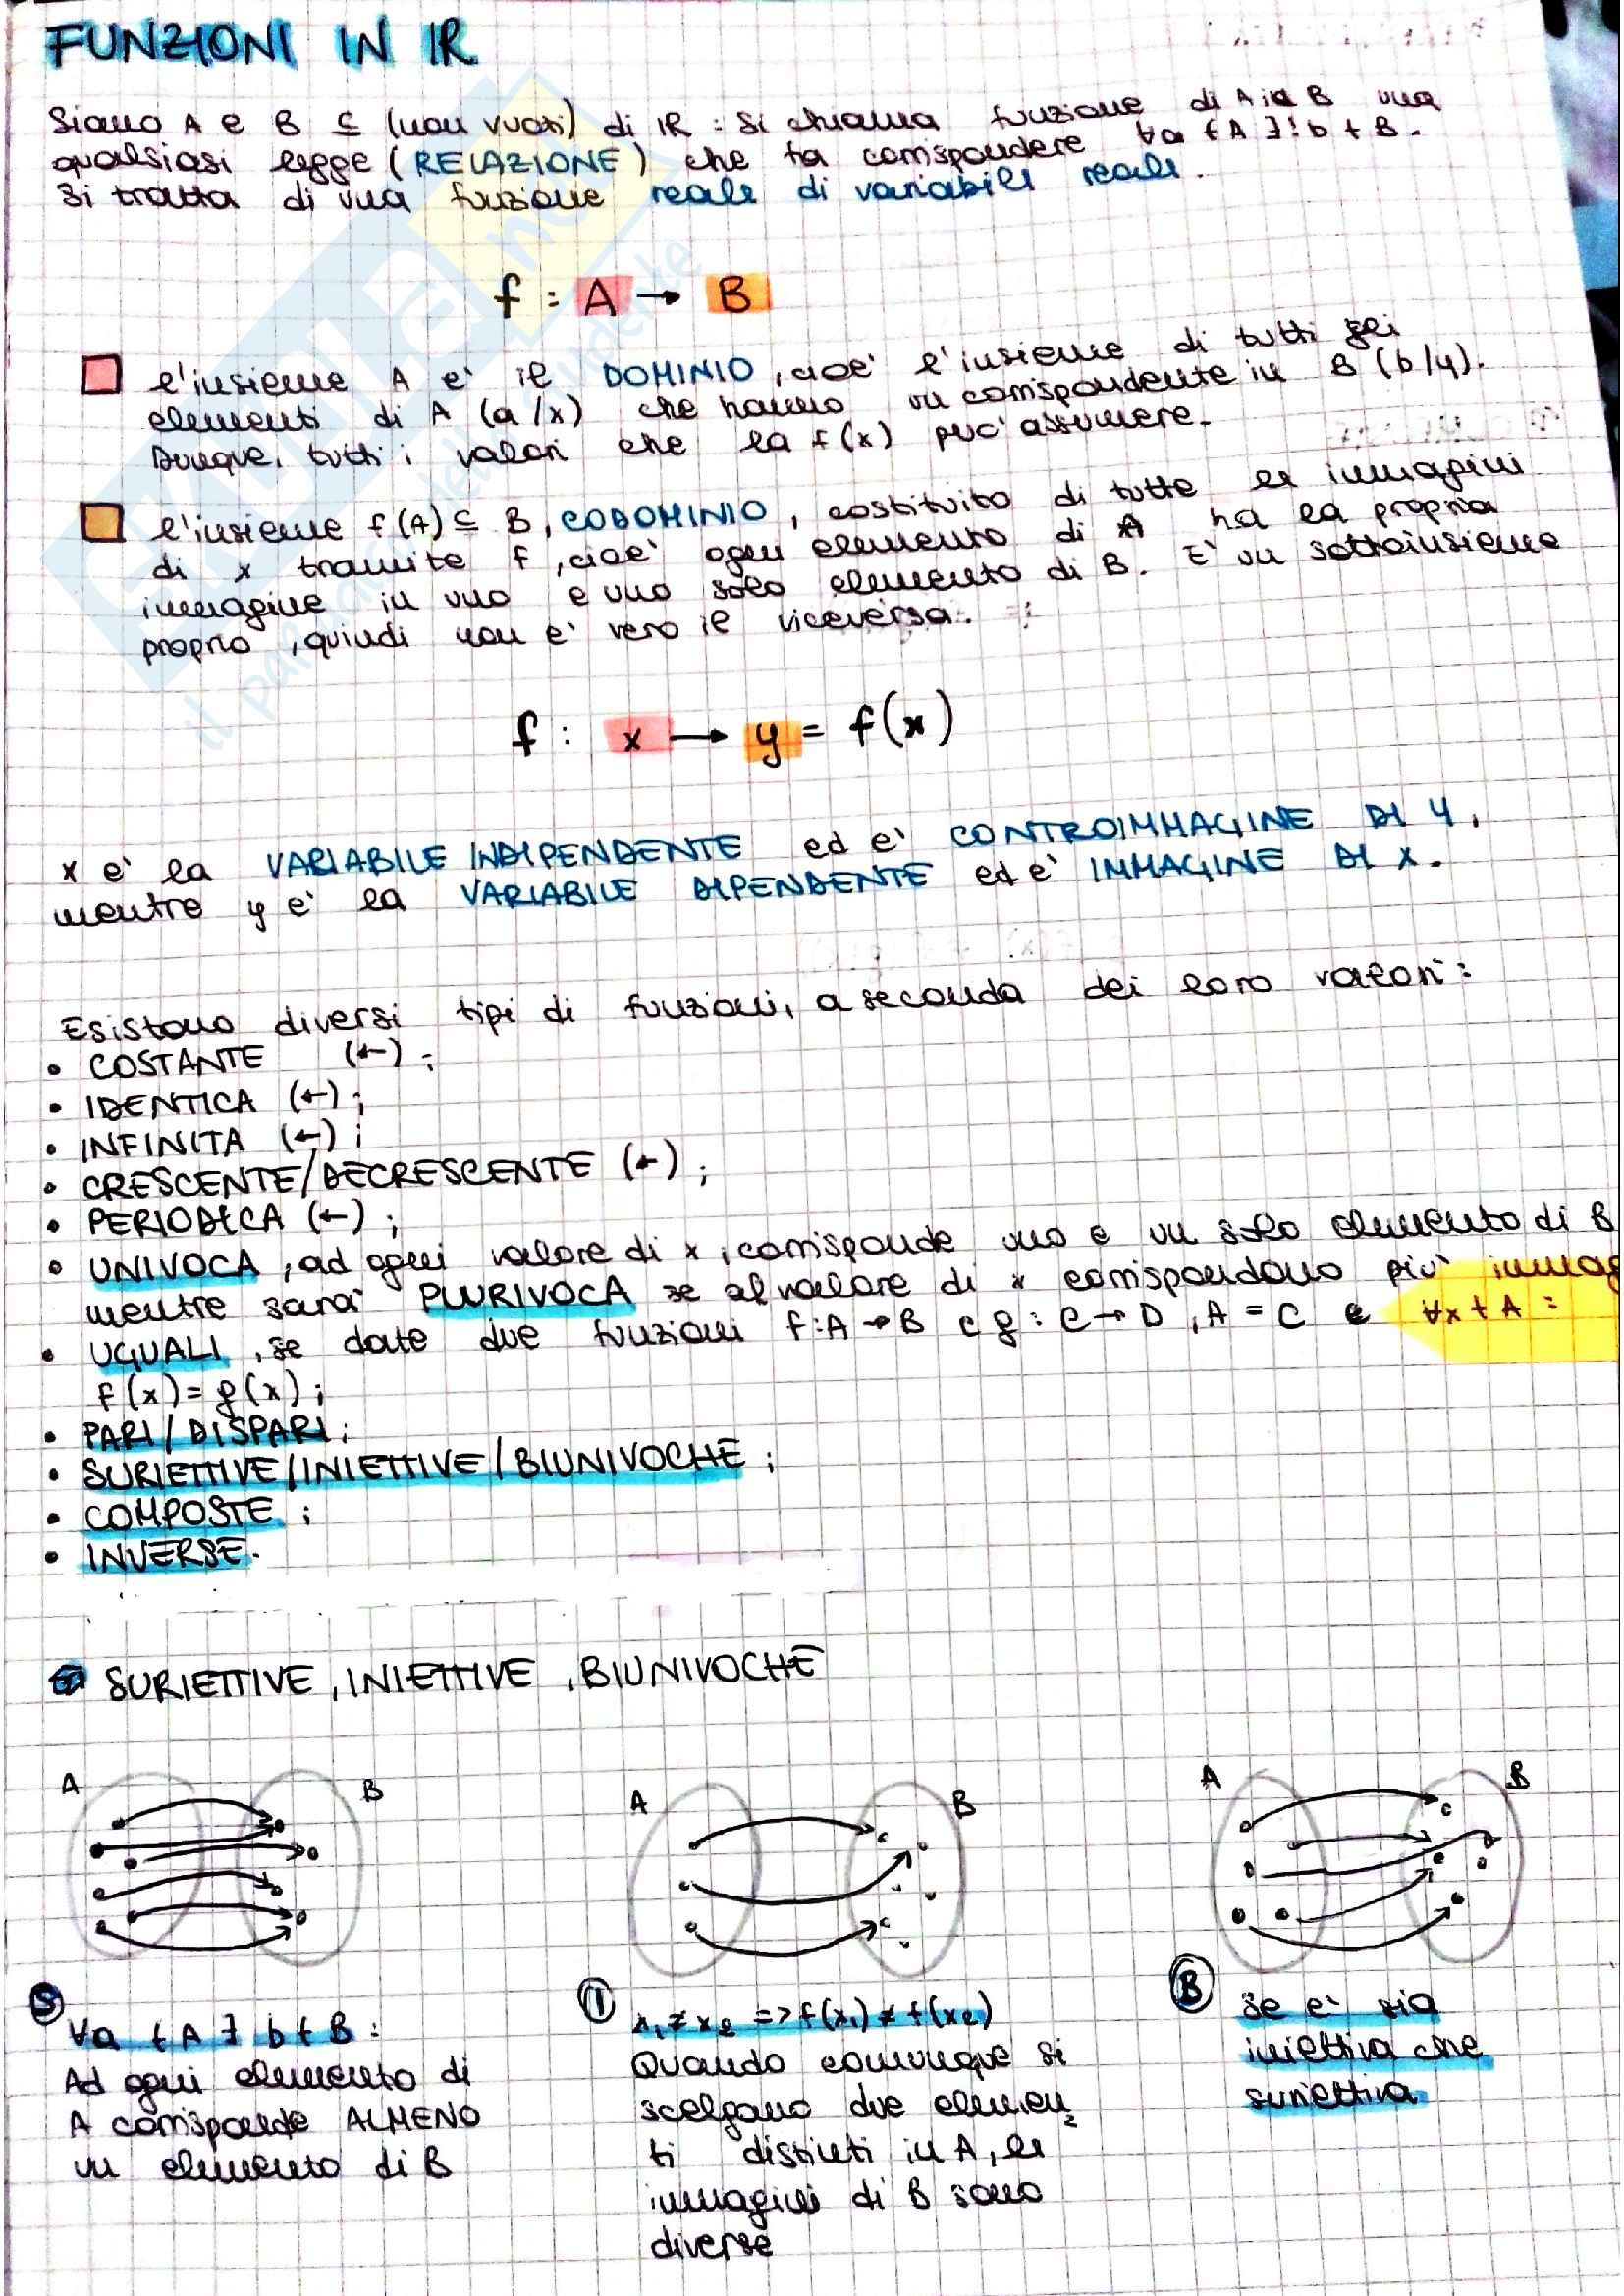 FUNZIONI IN IR
Siano A e B ⊆ (non vuoti) di IR : si chiama funzione di A in B una
qualsiasi legge (RELAZIONE) che fa corrispondere ∀a ∈ A ∃! b ∈ B.
Si tratta di una funzione reale di variabili reali.
f : A → B
l'insieme A e' il DOMINIO, cioe' l'insieme di tutti gli
elementi di A (a/x) che hanno un corrispondente in B (b/y).
Dunque, tutti i valori che la f(x) puo' assumere.
l'insieme f(A) ⊆ B, CODOMINIO, costituito di tutte le immagini
di x tramite f, cioe' ogni elemento di A ha la propria
immagine in uno e uno solo elemento di B. E' un sottoinsieme
proprio, quindi non e' vero il viceversa.
f : x → y = f(x)
x e' la VARIABILE INDIPENDENTE ed e' CONTROIMMAGINE DI y,
mentre y e' la VARIABILE DIPENDENTE ed e' IMMAGINE DI X.
Esistono diversi tipi di funzioni, a seconda dei loro valori:
• COSTANTE (←);
• IDENTICA (←);
• INFINITA (←);
• CRESCENTE/DECRESCENTE (←);
• PERIODICA (←);
• UNIVOCA, ad ogni valore di x, corrisponde uno e un solo elemento di B
mentre sarai PLURIVOCA se al valore di x corrispondono piu' immag
• UGUALI, se date due funzioni f: A → B e g: C → D, A = C e ∀x ∈ A :
f(x) = g(x);
• PARI/DISPARI;
• SURIETTIVE/INIETTIVE/BIUNIVOCHE;
• COMPOSTE;
• INVERSE.
SURIETTIVE, INIETTIVE, BIUNIVOCHE
A B A B A B
S ∀a ∈ A ∃ b ∈ B :
Ad ogni elemento di
A corrisponde ALMENO
un elemento di B
I x₁ ≠ x₂ => f(x₁) ≠ f(x₂)
Quando comunque si
scelgano due elemen
ti distinti in A, le
immagini di B sono
diverse
B se e' sia
iniettiva che
suriettiva